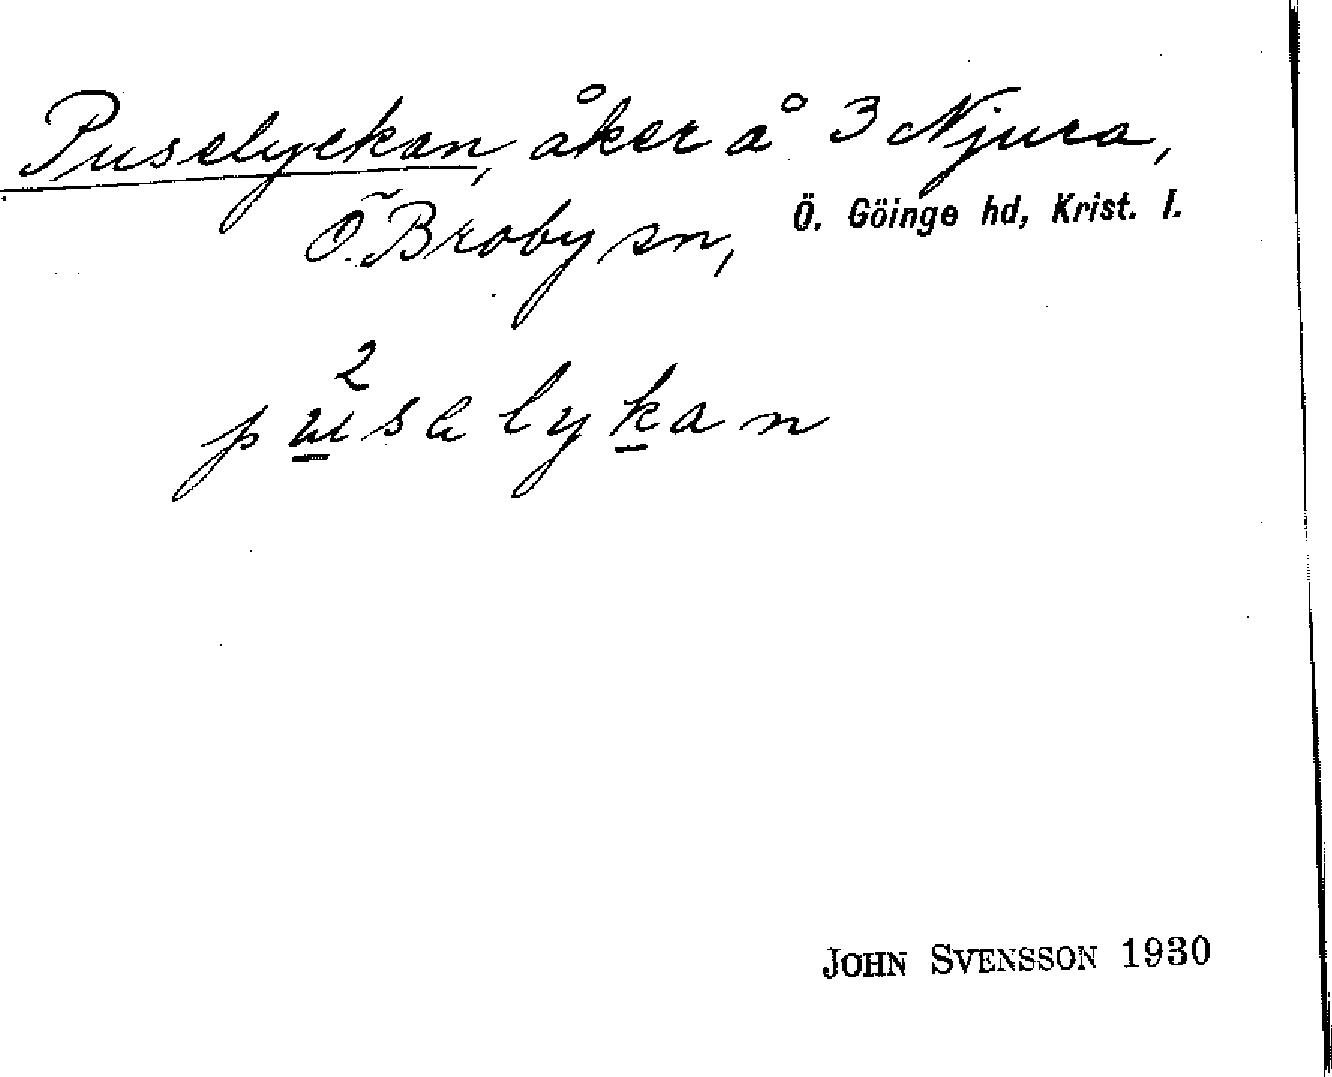 Puselyckan, åker å 3 Njura,
Ö. Broby sn, Ö. Göinge hd, Krist. l.
2
pusalykan
JOHN SVENSSON 1930